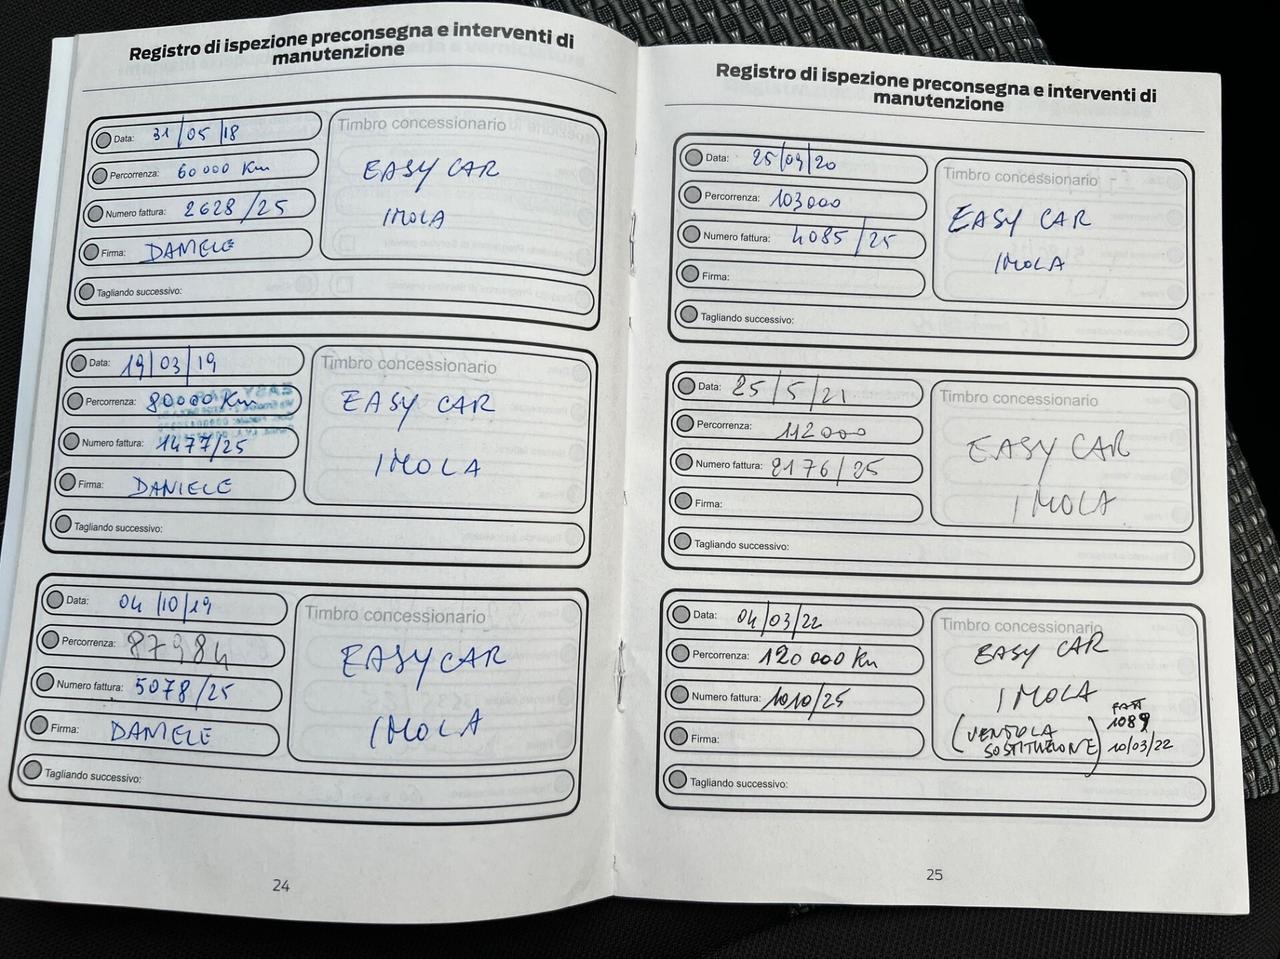 Registro di ispezione preconsegna e interventi di
manutenzione
Data: 31/05/18
Percorrenza: 60000 Km
Numero fattura: 2628/25
Firma: DANIELE
Tagliando successivo:
Timbro concessionario
EASY CAR
IMOLA
Data: 19/03/19
Percorrenza: 80000 Km
Numero fattura: 1477/25
Firma: DANIELE
Tagliando successivo:
Timbro concessionario
EASY CAR
IMOLA
Data: 04/10/19
Percorrenza: 87984
Numero fattura: 5078/25
Firma: DANIELE
Tagliando successivo:
Timbro concessionario
EASY CAR
IMOLA
24
Registro di ispezione preconsegna e interventi di
manutenzione
Data: 25/09/20
Percorrenza: 103000
Numero fattura: 4085/25
Firma:
Tagliando successivo:
Timbro concessionario
EASY CAR
IMOLA
Data: 25/5/21
Percorrenza: 112000
Numero fattura: 2176/25
Firma:
Tagliando successivo:
Timbro concessionario
EASY CAR
IMOLA
Data: 04/03/22
Percorrenza: 120000 Km
Numero fattura: 1010/25
Firma:
Tagliando successivo:
Timbro concessionario
EASY CAR
IMOLA
(VENTOLA
SOSTITUZIONE)
FATT
1089
10/03/22
25